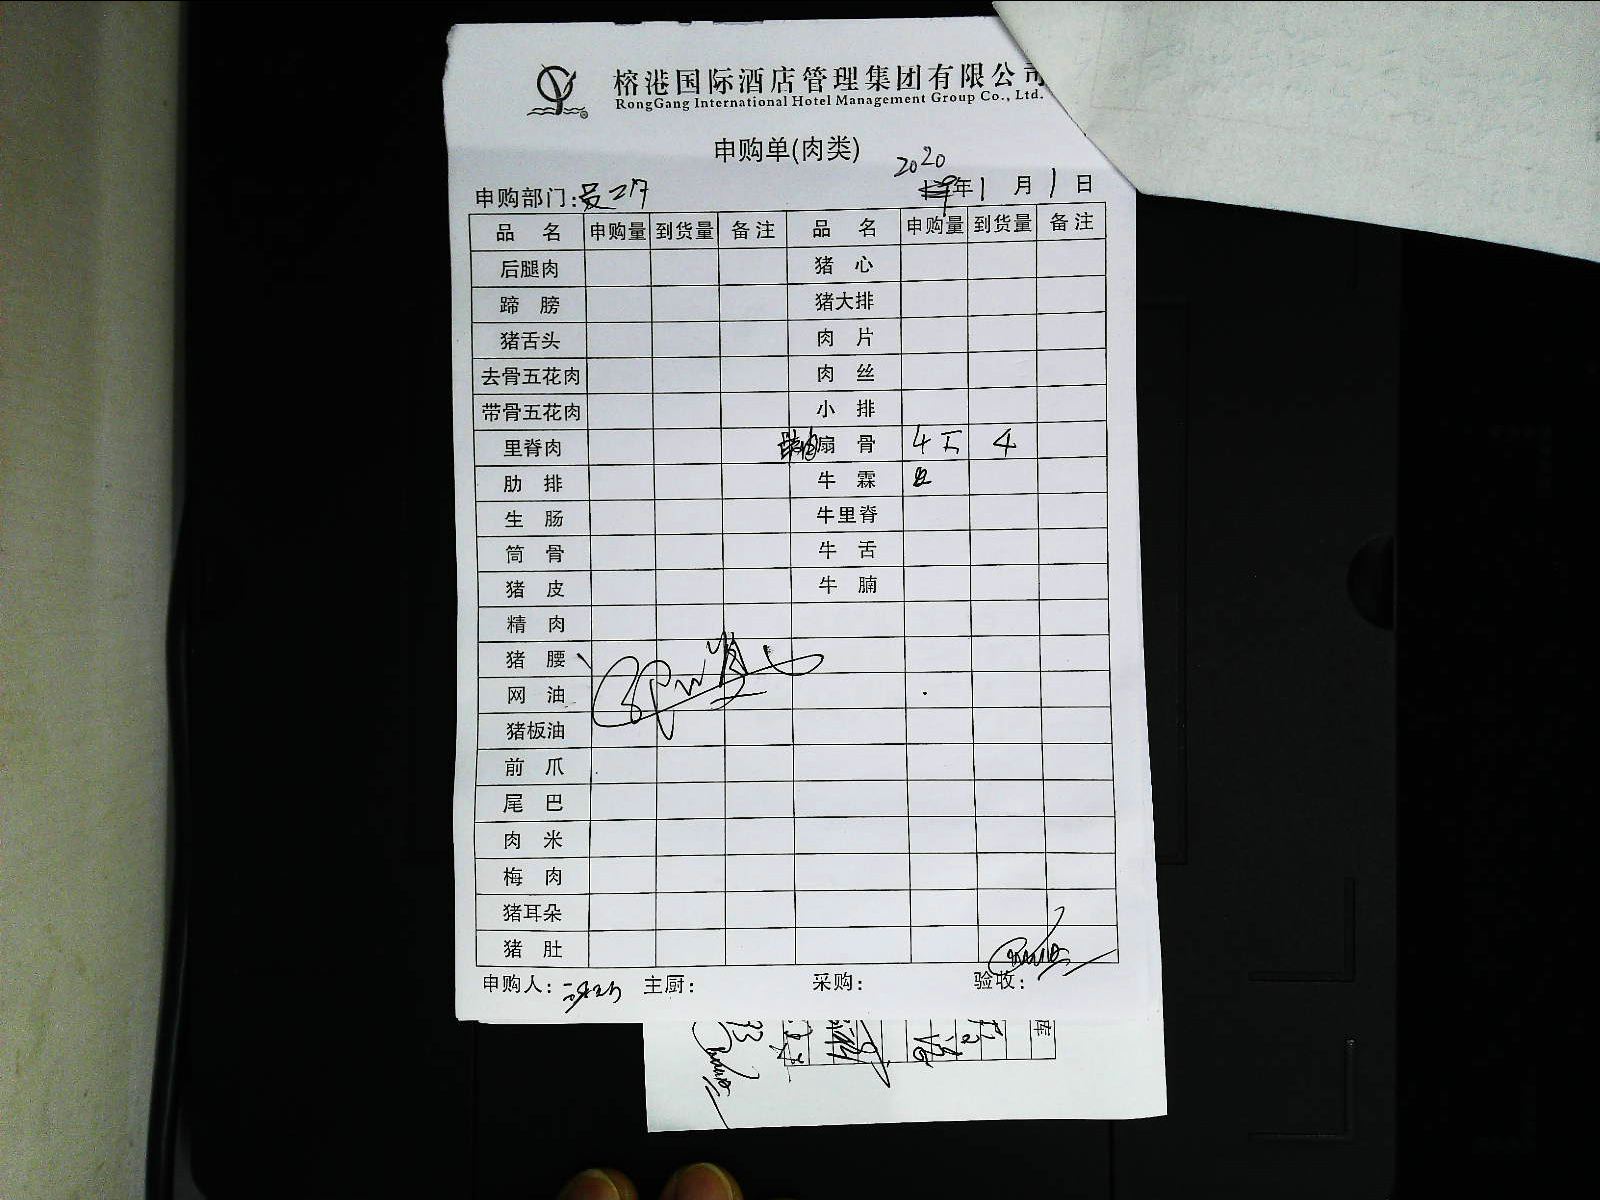 榕港国际酒店管理集团有限公司
RongGang International Hotel Management Group Co., Ltd.
申购单(肉类)
2020
申购部门: 年1月1日
品 名 申购量 到货量 备注 品 名 申购量 到货量 备注
后腿肉 猪 心
蹄 膀 猪大排
猪舌头 肉 片
去骨五花肉 肉 丝
带骨五花肉 小 排
里脊肉 扇 骨 4斤 4
肋 排 牛 霖
生 肠 牛里脊
筒 骨 牛 舌
猪 皮 牛 腩
精 肉
猪 腰
网 油
猪板油
前 爪
尾 巴
肉 米
梅 肉
猪耳朵
猪 肚
申购人: 主厨: 采购: 验收:
库